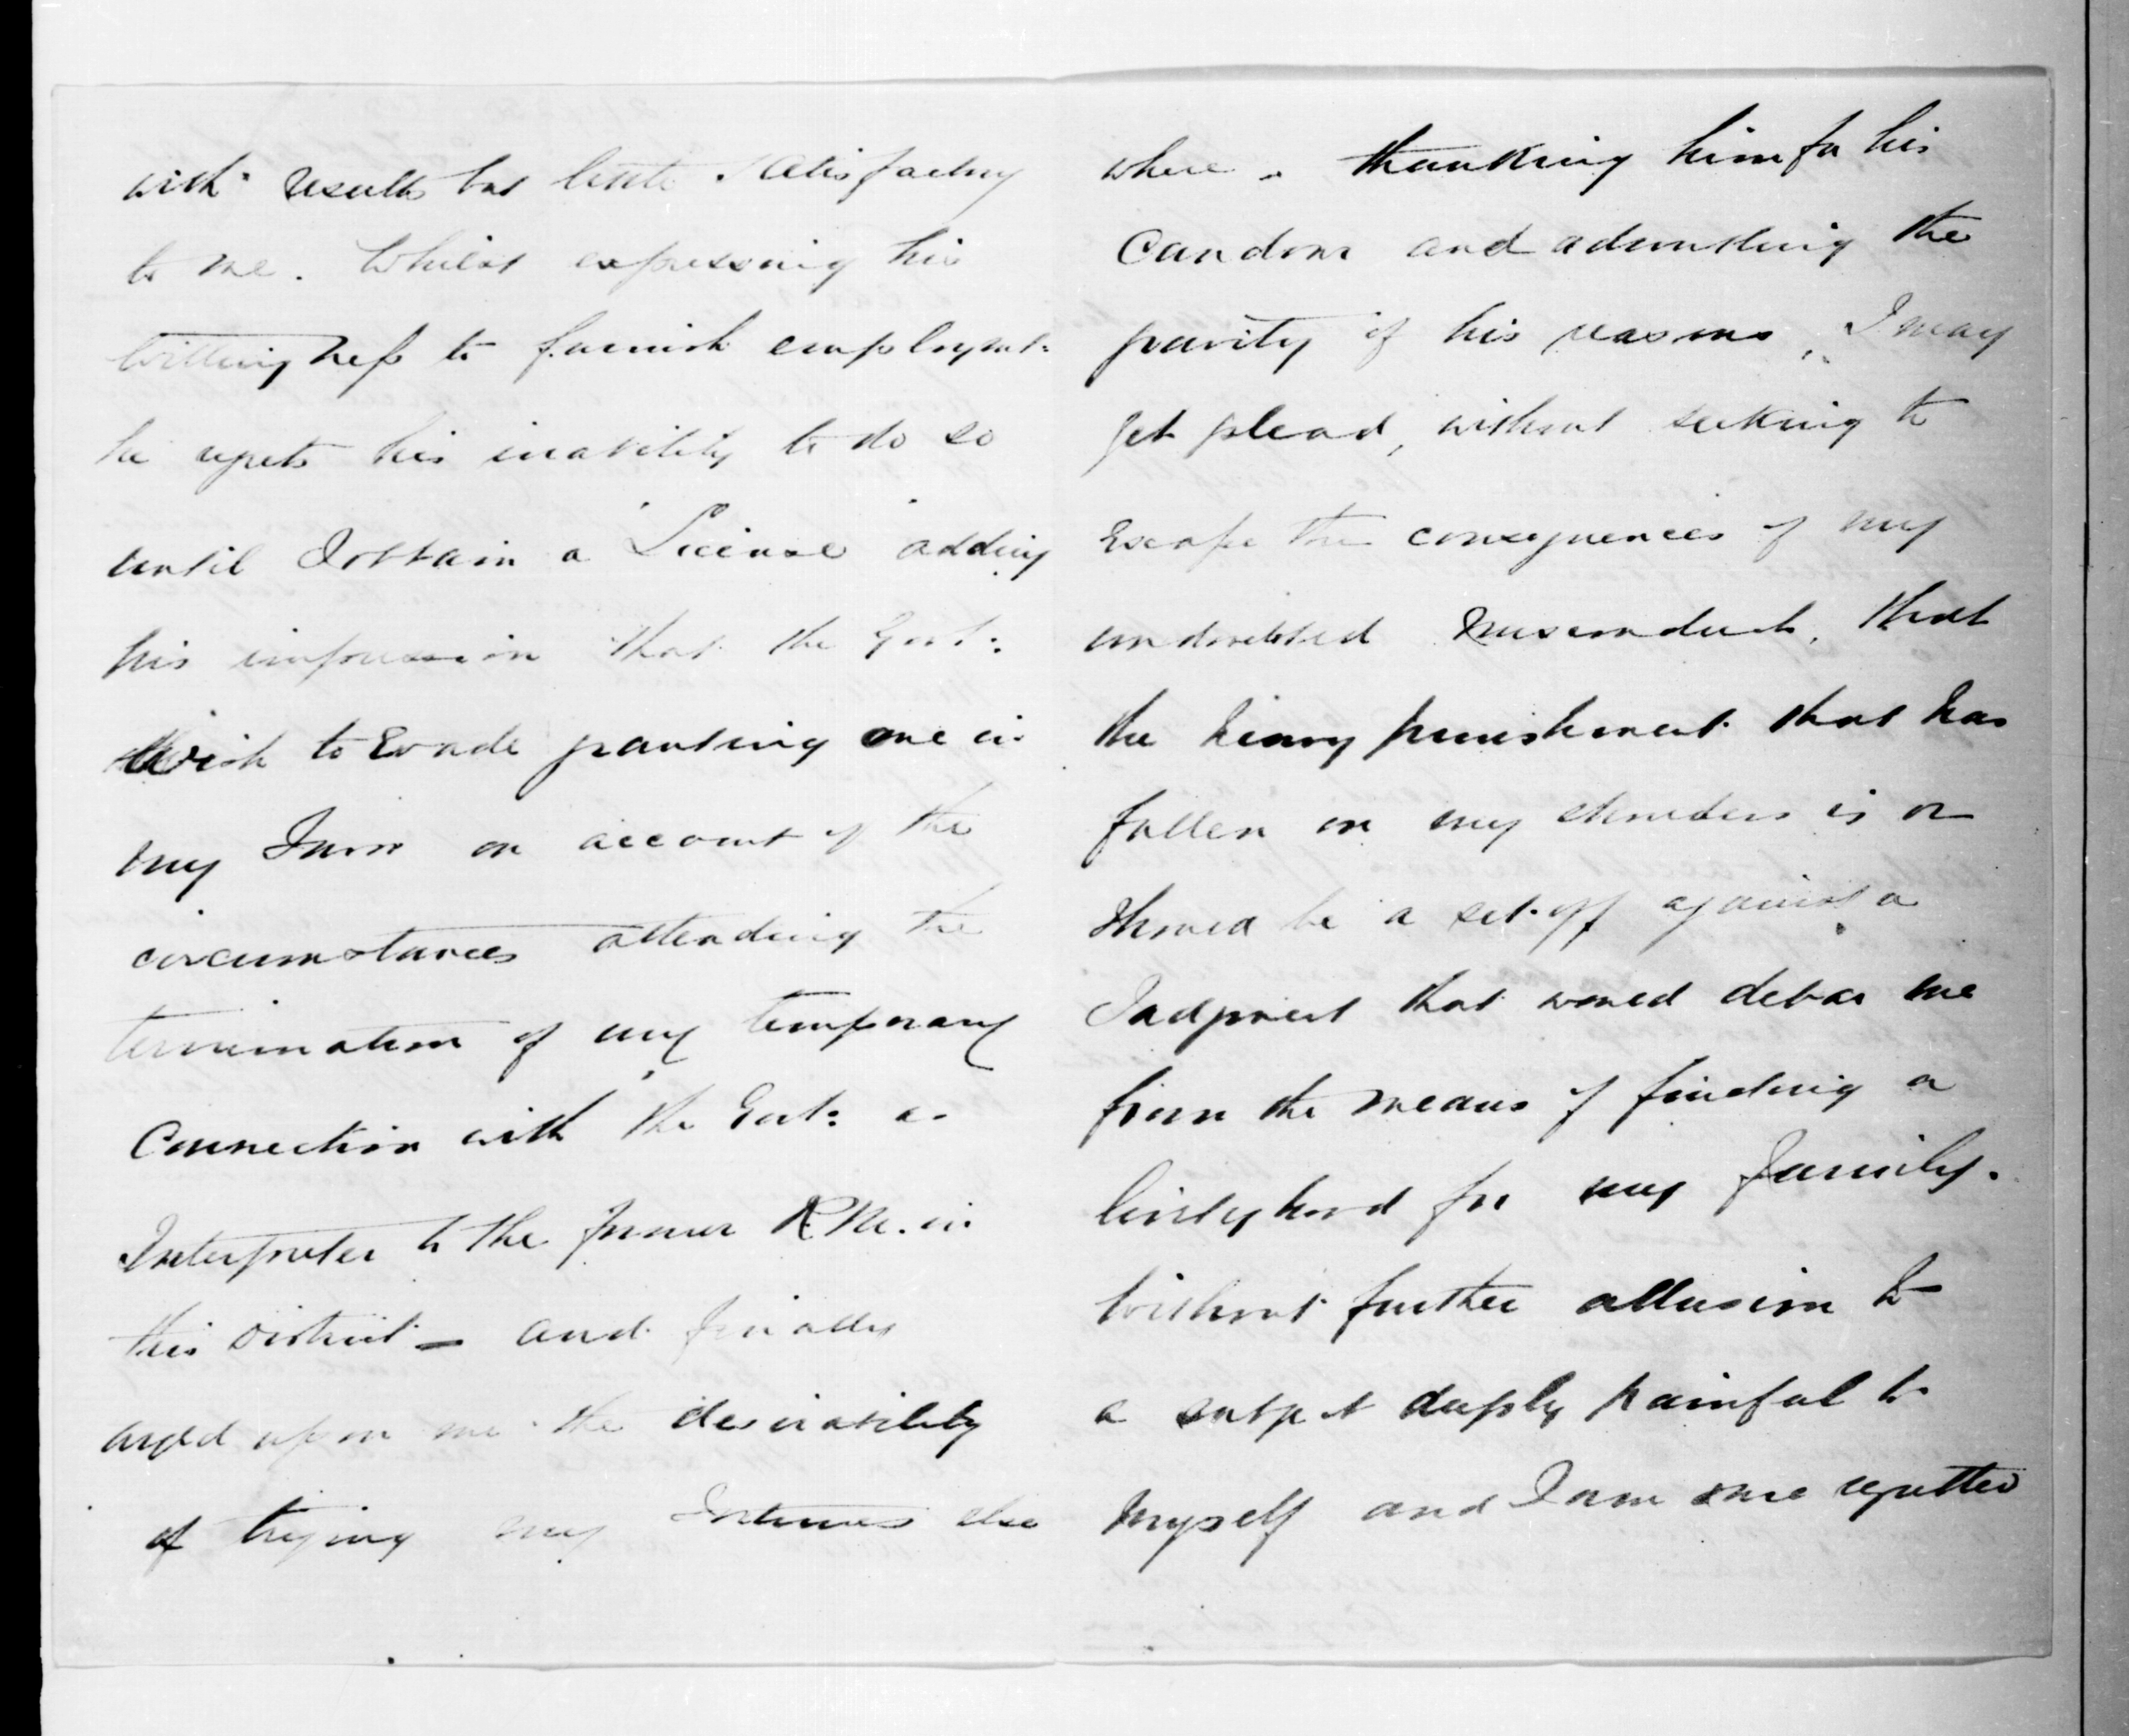 with results but little satisfactory
to me. Whilst expressing his
willingness to furnish employmt:
he regrets his inability to do so
until I obtain a "License" adding
his impression that the Govt:
wish to Evade granting one in
my favor on account of the
circumstances attending the
termination of my temporary
Connection with the Govt: as
Interpreter to the former R.M. in
this District – and finally
urged upon me the desirability
of trying my fortunes else
where. thanking him for his
Candour and admitting the
gravity of his reasons, I may
yet plead, without seeking to
Escape the consequences of my
undoubted misconduct, that
the heavy punishment that has
fallen on my shoulders is or
should be a set-off against a
Judgment that would debar me
from the means of finding a
livelyhood for my family.
Without further allusion to
a subject deeply painful to
myself and I am sure regretted